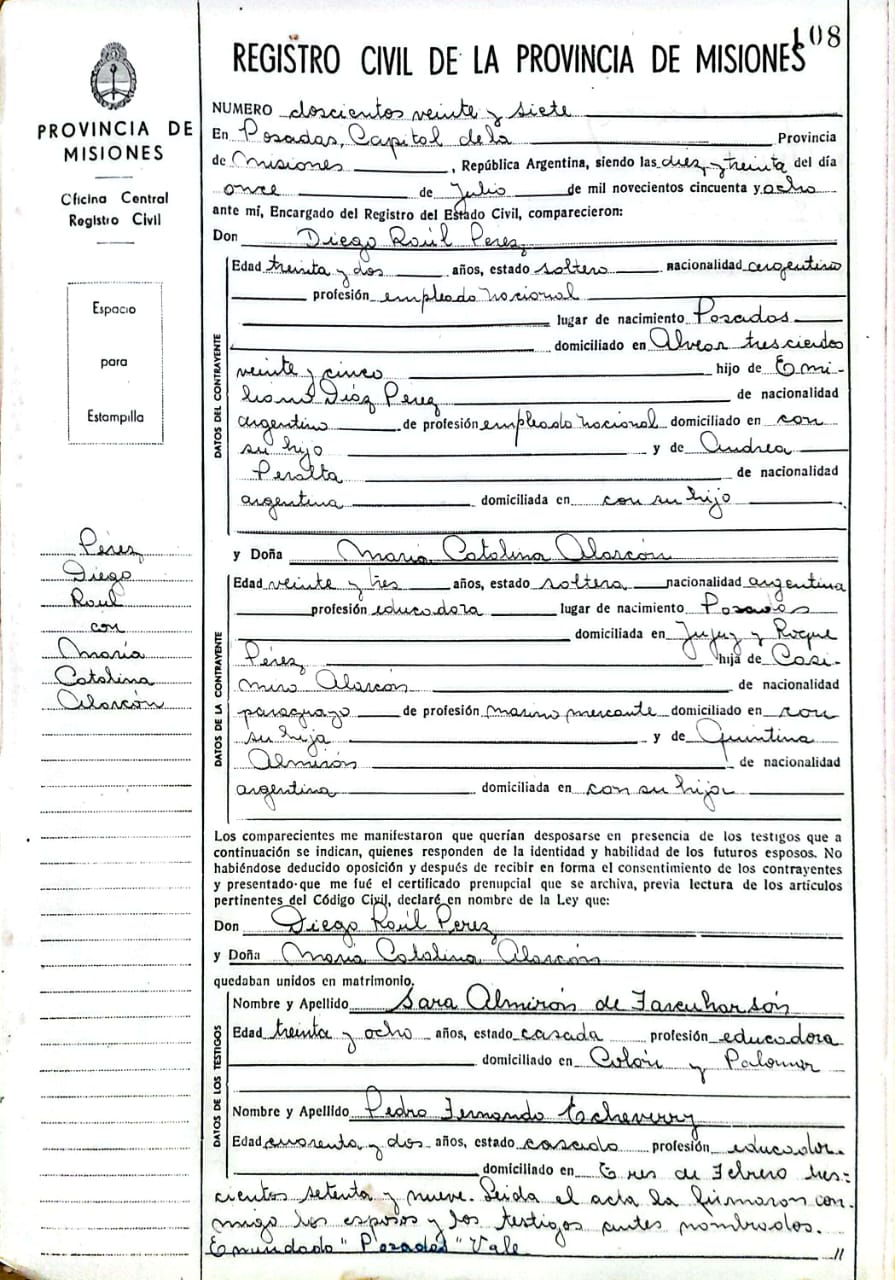 108
REGISTRO CIVIL DE LA PROVINCIA DE MISIONES
PROVINCIA DE
MISIONES
Oficina Central
Registro Civil
Espacio
para
Estampilla
Pérez
Diego
Raúl
con
María
Catalina
Alarcón
NUMERO doscientos veinte y siete
En Posadas, Capital de la Provincia
de Misiones, República Argentina, siendo las diez y treinta del día
once de Julio de mil novecientos cincuenta y ocho
ante mí, Encargado del Registro del Estado Civil, comparecieron:
Don Diego Raúl Perez
DATOS DEL CONTRAYENTE
Edad treinta y dos años, estado soltero nacionalidad argentino
profesión empleado nacional
lugar de nacimiento Posadas
domiciliado en Alvear trescientos
veinte y cinco hijo de Emi-
liano Diáz Perez de nacionalidad
argentino de profesión empleado nacional domiciliado en con
su hijo y de Andrea
Peralta de nacionalidad
argentina domiciliada en con su hijo
y Doña María Catalina Alarcón
DATOS DE LA CONTRAYENTE
Edad veinte y tres años, estado soltera nacionalidad argentina
profesión educadora lugar de nacimiento Posadas
domiciliada en Jujuy y Roque
Pérez hija de Casi-
miro Alarcón de nacionalidad
paraguayo de profesión marino mercante domiciliado en con
su hija y de Quintina
Almirón de nacionalidad
argentina domiciliada en con su hija
Los comparecientes me manifestaron que querían desposarse en presencia de los testigos que a
continuación se indican, quienes responden de la identidad y habilidad de los futuros esposos. No
habiéndose deducido oposición y después de recibir en forma el consentimiento de los contrayentes
y presentado que me fué el certificado prenupcial que se archiva, previa lectura de los artículos
pertinentes del Código Civil, declaré en nombre de la Ley que:
Don Diego Raúl Perez
y Doña María Catalina Alarcón
quedaban unidos en matrimonio.
DATOS DE LOS TESTIGOS
Nombre y Apellido Sara Almirón de
Edad treinta y ocho años, estado casada profesión educadora
domiciliado en Colón y Palomar
Nombre y Apellido Pedro Fernando Echeverry
Edad cuarenta y dos años, estado casado profesión educador.
domiciliado en Tres de Febrero tres-
cientos setenta y nueve. Leida el acta la firmaron con-
migo los esposos y los testigos antes nombrados.
Enmendado "Posadas" Vale //